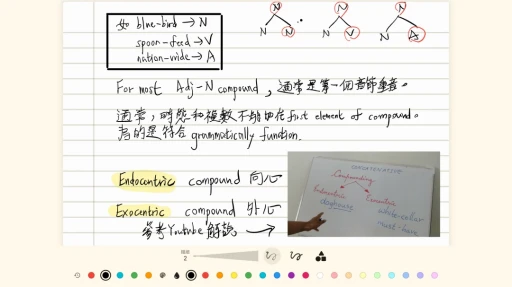 如 blue-bird → N
spoon-feed → V
nation-wide → A
N
N N
N
N V
N
N A
For most Adj-N compound, 通常是第一個音節重音。
通常, 時態和複數不能加在 first element of compound。
者的是符合 grammatically function.
Endocentric compound 向心
Exocentric compound 外心
參考 Youtube 解說 →
Compounding
Endocentric Exocentric
doghouse white-collar
must-have
2